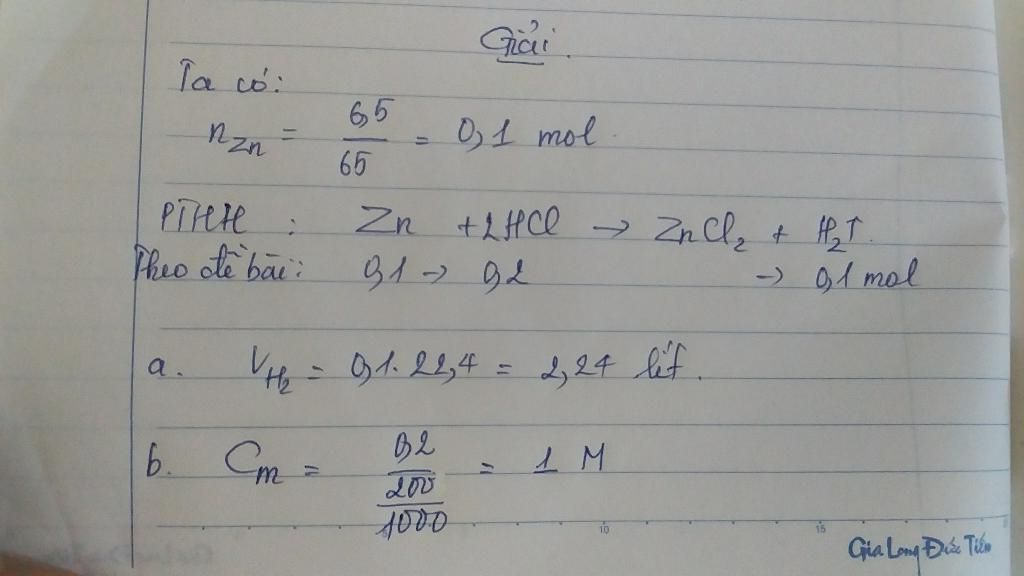 Giải.
Ta có:
n_Zn = 6,5/65 = 0,1 mol.
PTHH : Zn + 2HCl → ZnCl₂ + H₂↑.
Theo đề bài: 0,1 → 0,2 → 0,1 mol
a. V_H₂ = 0,1. 22,4 = 2,24 lít.
b. Cm = 0,2/(200/1000) = 1 M
10 15
Gia Long Đức Tiến